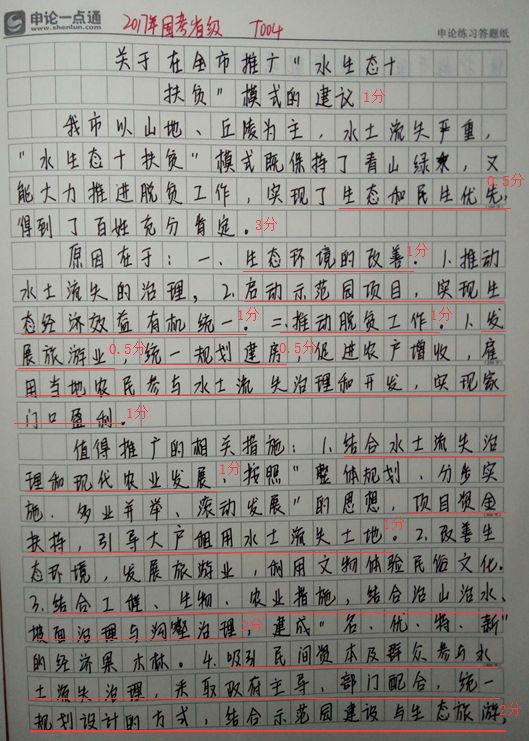 申论一点通
www.shenlun.com
2017年国考省级 T004
申论练习答题纸
关于在全市推广"水生态+
扶贫"模式的建议 1分
我市以山地、丘陵为主,水土流失严重,
"水生态+扶贫"模式既保持了青山绿水,又
能大力推进脱贫工作,实现了生态和民生优先, 0.5分
得到了百姓充分肯定。 3分
原因在于:一、生态环境的改善。1分 1.推动
水土流失的治理。2.启动示范园项目,实现生
态经济效益有机统一。1分 二、推动脱贫工作。1分 1.发
展旅游业,0.5分 统一规划建房,0.5分 促进农户增收,雇
用当地农民参与水土流失治理和开发,实现家
门口盈利。1分
值得推广的相关措施:1.结合水土流失治
理和现代农业发展,1分 按照"整体规划、分步实
施、多业并举、滚动发展"的思想,项目资金
扶持,引导大户租用水土流失土地。1分 2.改善生
态环境,发展旅游业,利用文物体验民俗文化。
3.结合工程、生物、农业措施,结合治山治水、
坡面治理与沟壑治理,2分 建成"名、优、特、新"
的经济果木林。4.吸引民间资本及群众参与水
土流失治理,采取政府主导,部门配合,统一
规划设计的方式,结合示范园建设与生态旅游, 2分